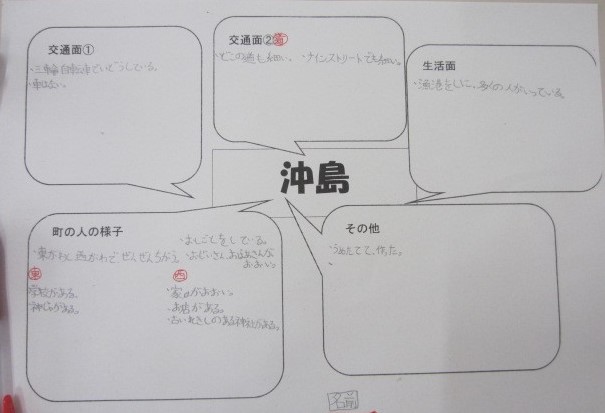 交通面①
・三輪自転車でいどうしている。
・車はない。
交通面②道
・どこの道も細い。
・メインストリートでも細い。
生活面
・漁港をしに、多くの人がいっている。
沖島
町の人の様子
・よしごとをしている。
・東がわと西がわでぜんぜんちがう。
・おじいさん、おばあさんがおおい。
東
学校がある。
神社がある。
西
・家がおおい。
・お店がある。
・古いれきしのある神社がある。
その他
・うめたてて、作った。
・
名前